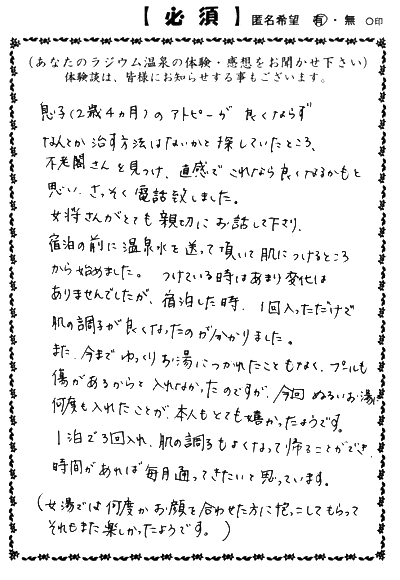 【必須】 匿名希望 有・無 ○印
(あなたのラジウム温泉の体験・感想をお聞かせ下さい)
体験談は、皆様にお知らせする事もございます。
息子(2歳4ヵ月)のアトピーが 良くならず
なんとか治す方法はないかと探していたところ、
不老閣さんを見つけ、直感でこれなら良くなるかもと
思い、さっそく電話致しました。
女将さんがとても親切にお話して下さり、
宿泊の前に温泉水を送って頂いて肌につけるところ
から始めました。 つけている時はあまり変化は
ありませんでしたが、宿泊した時、1回入っただけで
肌の調子が良くなったのが分かりました。
また、今までゆっくりお湯につかれたこともなく、プールも
傷があるからと入れなかったのですが、今回ぬるいお湯に
何度も入れたことが、本人もとても嬉かったようです。
1泊で3回入れ、肌の調子もよくなって帰ることができ、
時間があれば毎月通ってきたいと思っています。
(女湯では何度かお顔を合わせた方に抱っこしてもらって
それもまた楽しかったようです。)